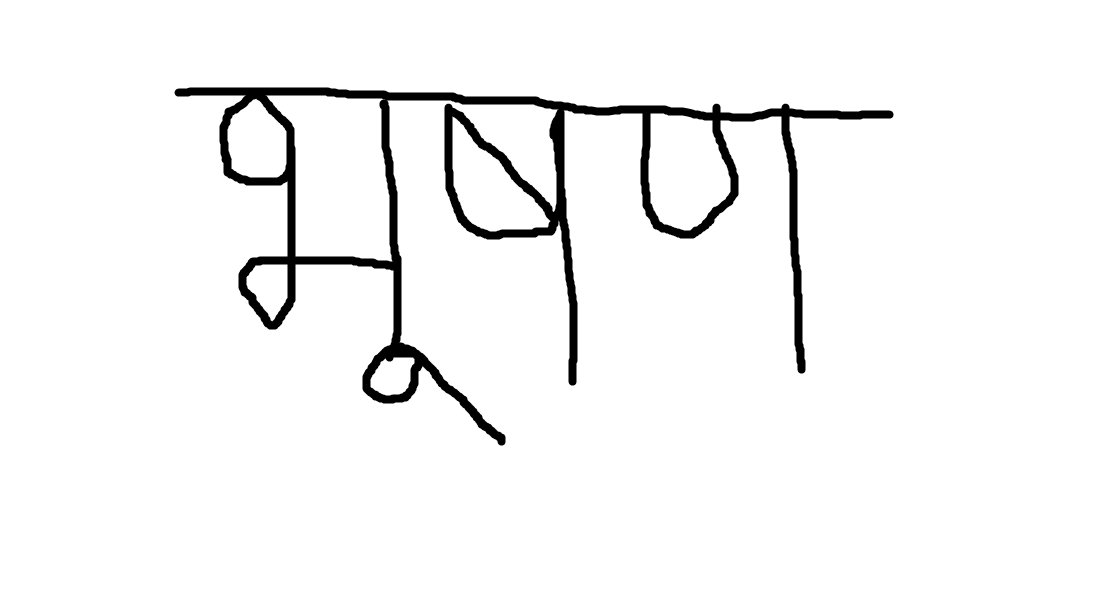 भूषण